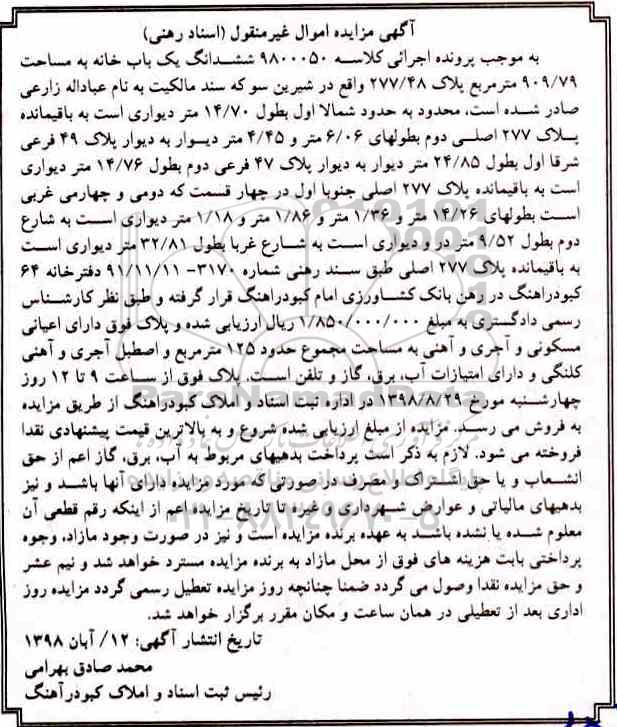 آگهی مزایده اموال غیرمنقول (اسناد رهنی)
به موجب پرونده اجرائی کلاسه ۹۸۰۰۰۵۰ ششدانگ یک باب خانه به مساحت
۹۰۹/۷۹ مترمربع پلاک ۲۷۷/۴۸ واقع در شیرین سو که سند مالکیت به نام عباداله زارعی
صادر شده است، محدود به حدود شمالا اول بطول ۱۴/۷۰ متر دیواری است به باقیمانده
پلاک ۲۷۷ اصلی دوم بطولهای ۶/۰۶ متر و ۴/۴۵ متر دیوار به دیوار پلاک ۴۹ فرعی
شرقا اول بطول ۲۴/۸۵ متر دیوار به دیوار پلاک ۴۷ فرعی دوم بطول ۱۴/۷۶ متر دیواری
است به باقیمانده پلاک ۲۷۷ اصلی جنوبا اول در چهار قسمت که دومی و چهارمی غربی
است بطولهای ۱۴/۲۶ متر و ۱/۳۶ متر و ۱/۸۶ متر و ۱/۱۸ متر دیواری است به شارع
دوم بطول ۹/۵۲ متر در و دیواری است به شارع غربا بطول ۳۲/۸۱ متر دیواری است
به باقیمانده پلاک ۲۷۷ اصلی طبق سند رهنی شماره ۳۱۷۰- ۹۱/۱۱/۱۱ دفترخانه ۶۴
کبودراهنگ در رهن بانک کشاورزی امام کبودراهنگ قرار گرفته و طبق نظر کارشناس
رسمی دادگستری به مبلغ ۱/۸۵۰/۰۰۰/۰۰۰ ریال ارزیابی شده و پلاک فوق دارای اعیانی
مسکونی و آجری و آهنی به مساحت مجموع حدود ۱۲۵ مترمربع و اصطبل آجری و آهنی
کلنگی و دارای امتیازات آب، برق، گاز و تلفن است. پلاک فوق از ساعت ۹ تا ۱۲ روز
چهارشنبه مورخ ۱۳۹۸/۸/۲۹ در اداره ثبت اسناد و املاک کبودراهنگ از طریق مزایده
به فروش می رسد. مزایده از مبلغ ارزیابی شده شروع و به بالاترین قیمت پیشنهادی نقدا
فروخته می شود. لازم به ذکر است پرداخت بدهیهای مربوط به آب، برق، گاز اعم از حق
انشعاب و یا حق اشتراک و مصرف در صورتی که مورد مزایده دارای آنها باشد و نیز
بدهیهای مالیاتی و عوارض شهرداری و غیره تا تاریخ مزایده اعم از اینکه رقم قطعی آن
معلوم شده یا نشده باشد به عهده برنده مزایده است و نیز در صورت وجود مازاد، وجوه
پرداختی بابت هزینه های فوق از محل مازاد به برنده مزایده مسترد خواهد شد و نیم عشر
و حق مزایده نقدا وصول می گردد ضمنا چنانچه روز مزایده تعطیل رسمی گردد مزایده روز
اداری بعد از تعطیلی در همان ساعت و مکان مقرر برگزار خواهد شد.
تاریخ انتشار آگهی: ۱۲/ آبان ۱۳۹۸
محمد صادق بهرامی
رئیس ثبت اسناد و املاک کبودرآهنگ